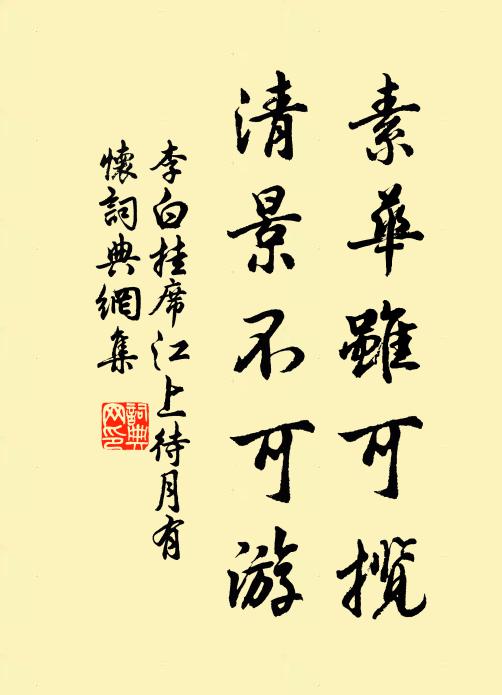 素華雖可攬
清景不可游
李白挂席江上待月有
懷詞典網集
詞典
网印